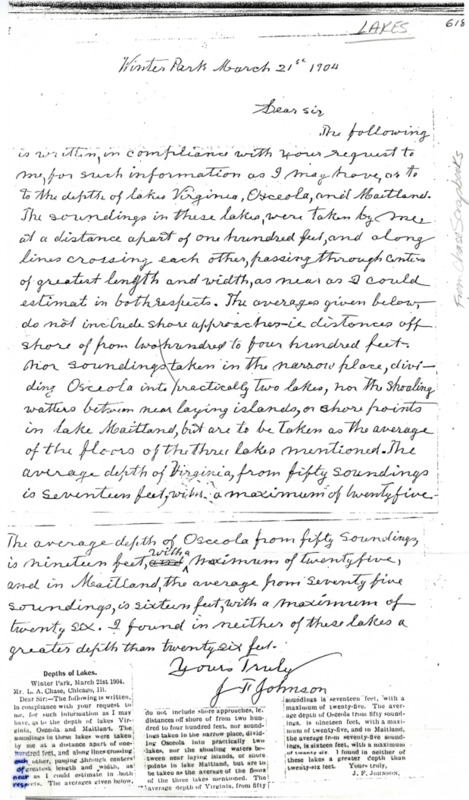 LAKES
618
From Chase Scrapbooks
Winter Park March 21st 1904
Dear sir
The following
is written, in compliance with your request to
me, for such information as I may have, as to
to the depth of lakes Virginia, Osceola, and Maitland.
The soundings in these lakes, were taken by me
at a distance apart of one hundred feet, and along
lines crossing each other, passing through centers
of greatest length and width, as near as I could
estimat in both respects. The averages given below,
do not include shore approaches ie distances off
shore of from two hundred to four hundred feet.
Nor soundings taken in the narrow place, divi-
ding Osceola into practically two lakes, nor the shoaling
watters between near laying islands, or shore points
in lake Maitland, but are to be taken as the average
of the floors of the three lakes mentioned. The
average depth of Virginia, from fifty soundings
is seventeen feet, with a maximum of twenty five.
The average depth of Osceola from fifty soundings,
is nineteen feet, with a maximum of twenty five,
and in Maitland, the average from seventy five
soundings, is sixteen feet, with a maximum of
twenty six. I found in neither of these lakes a
greater depth than twenty six feet.
Yours Truly
J F Johnson
Depths of Lakes.
Winter Park, March 21st 1904.
Mr. L. A. Chase, Chicago, Ill.
Dear Sir:—The following is written,
in compliance with your request to
me, for such information as I may
have, as to the depth of lakes Vir-
ginia, Osceola and Maitland. The
soundings in these lakes were taken
by me at a distance apart of one-
hundred feet, and along lines crossing
each other, passing through centers
of greatest length and width, as
near as I could estimate in both
respects. The averages given below,
do not include shore approaches, ie.
distances off shore of from two hun-
dred to four hundred feet, nor sound-
ings taken in the narrow place, divid-
ing Osceola into practically two
lakes, nor the shoaling waters be-
tween near laying islands, or shore
points in lake Maitland, but are to
be taken as the average of the floors
of the three lakes mentioned. The
average depth of Virginia, from fifty
soundings is seventeen feet, with a
maximum of twenty-five. The aver-
age depth of Osceola from fifty sound-
ings, is nineteen feet, with a maxi-
mum of twenty-five, and in Maitland,
the average from seventy-five sound-
ings, is sixteen feet, with a maximum
of twenty six. I found in neither of
these lakes a greater depth than
twenty-six feet. Yours truly,
J. F. Johnson.